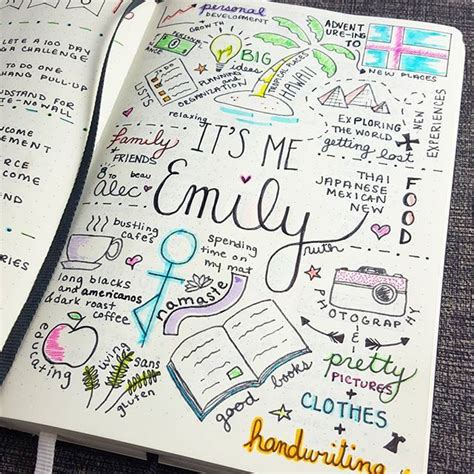 LETE A 100 DAY
GA CHALLENGE
TO DO ONE
HANG PULL-UP
NDSTAND FOR
TE-NO WALL
COME
EMENT
RIES
personal
Development
ADVENT
URE-ING TO
NEW PLACES
BIG
ideas
LISTS
PLANNING
and
ORGANIZATION
TROPICAL PLACES
HAWAII
EXPLORING
THE WORLD
getting lost
NEW EXPERIENCES
relaxing
IT'S ME
Emily
ruth
family
+
FRIENDS
& to beau
Alec
THAI
JAPANESE
MEXICAN
NEW
FOOD
bustling
cafes
spending
time on
my mat
namaste
long blacks
and americanos
& dark roast
coffee
PHOTOGRAPHY
&
pretty
PICTURES
+
CLOTHES
+
handwriting
educating
living
sans
gluten
good books